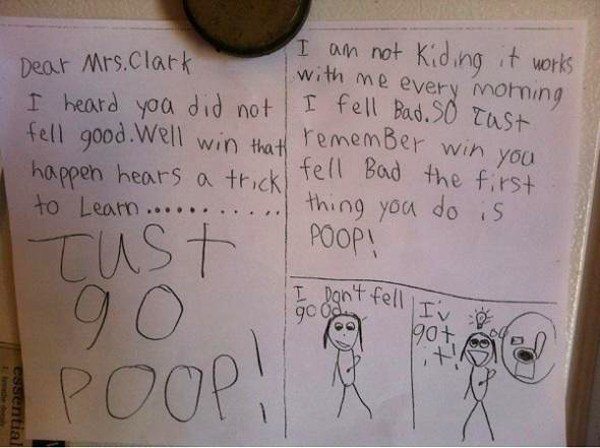 Dear Mrs.Clark
I heard you did not
fell good.Well win that
happen hears a trick
to Learn..............
JUST
go
POOP!
I am not Kiding it works
with me every morning
I fell Bad.SO Just
remember win you
fell Bad the first
thing you do is
POOP!
I Don't fell
good.
I'v
got
it!
essential